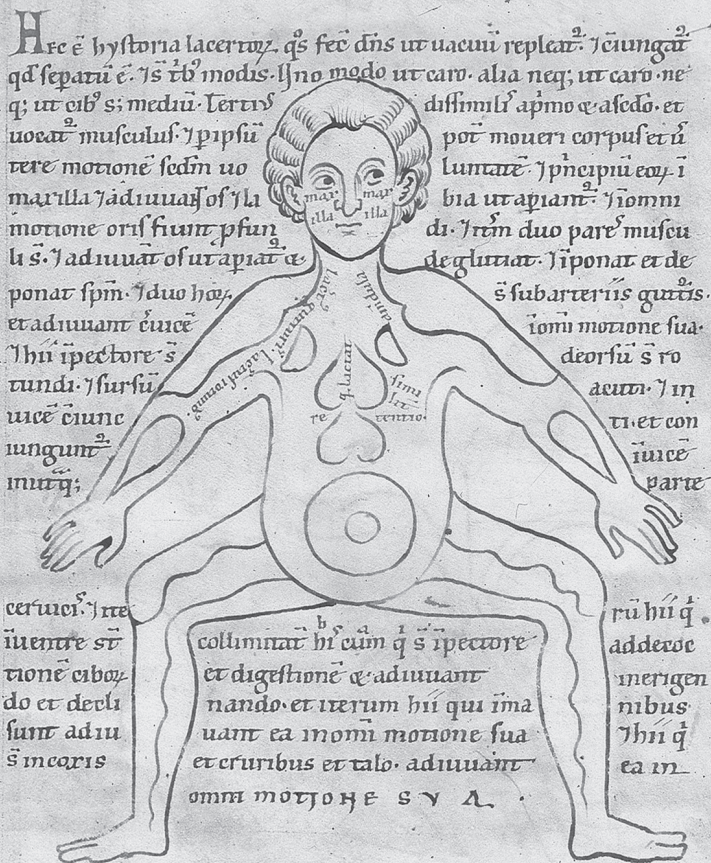 Hec ē hystoria lacertoꝝ. q̄s fec̄ dn̄s ut vacuū repleat᷑. ⁊ c̄iungat᷑
qd̓ sepatū ē. ⁊ s̄ t̄b᷒ modis. Uno modo ut caro. alia neq; ut caro ne
q; ut cib᷒ s; mediū. Terti᷒ dissimil̓ ap̓mo ⁊ aſcd̓o. et
uocat᷑ musculus. ⁊ p ip̄sū pot̄ moueri corpus et ū
tere motionē scdm uo luntatē. ⁊ p̓ncipiū eoꝝ ī
maxilla ⁊ adiuuāt os ⁊ la bia ut apiant᷑. ⁊ ī omni
motione oris fiunt p̓fun di. It̄m duo pares muscu
li s̄. ⁊ adiuuāt os ut apiat᷑ ⁊ deglutiat. ⁊ īponat et de
ponat sp̄m. ⁊ duo hoꝝ s̄ sub arteriis gutt᷑is.
et adiuuant c̓uicē ī omi motione sua.
⁊ hii ī pectore s̄ deorsū s̄ ro
tundi. ⁊ sursū acuti. ⁊ in
uicē c̄iunc ti. et con
iungunt᷑ īuicē
parte
max illa max illa
q̓ lactat
simi lit̓
re tentio.
ceruic̓. ⁊ ite rū hii q̓
īuentre st̄ collimitat̄ hi᷒ cūm q̓ s̄ ī pectore ad decoc
tionē ciboꝝ et digestionē ⁊ adiuuant in erigen
do et decli nando. et iterum hii qui īma nibus
sunt adiu uant ea in om̄i motione sua ⁊ hii q̓
s̄ in coxis et cruribus et talo. adiuuant ea in
omni motione sua.